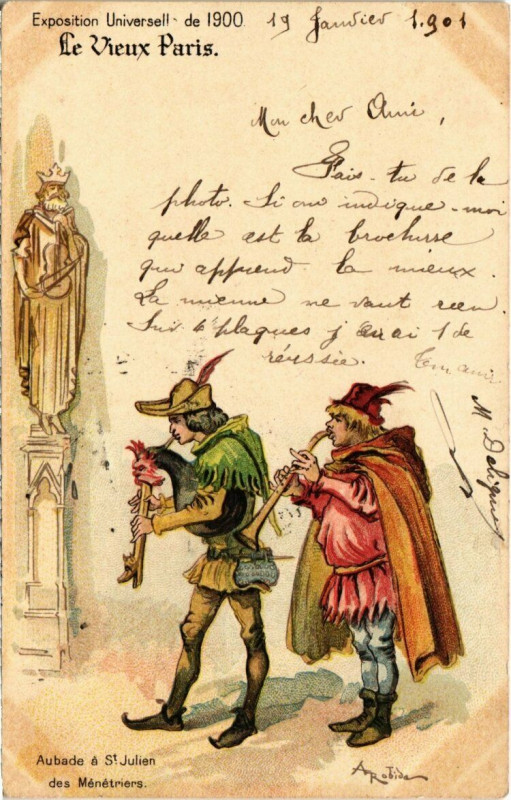 Exposition Universell de 1900
19 Janvier 1.901
Le Vieux Paris.
Mon cher Ami,
Fais-tu de la
photo. Si oui indique-moi
quelle est la brochure
qui apprend le mieux.
La mienne ne vaut rien.
Sur 6 plaques j en ai 1 de
réussie. Ton ami
M. Deligny
Aubade à St Julien
des Ménétriers.
A. Robida